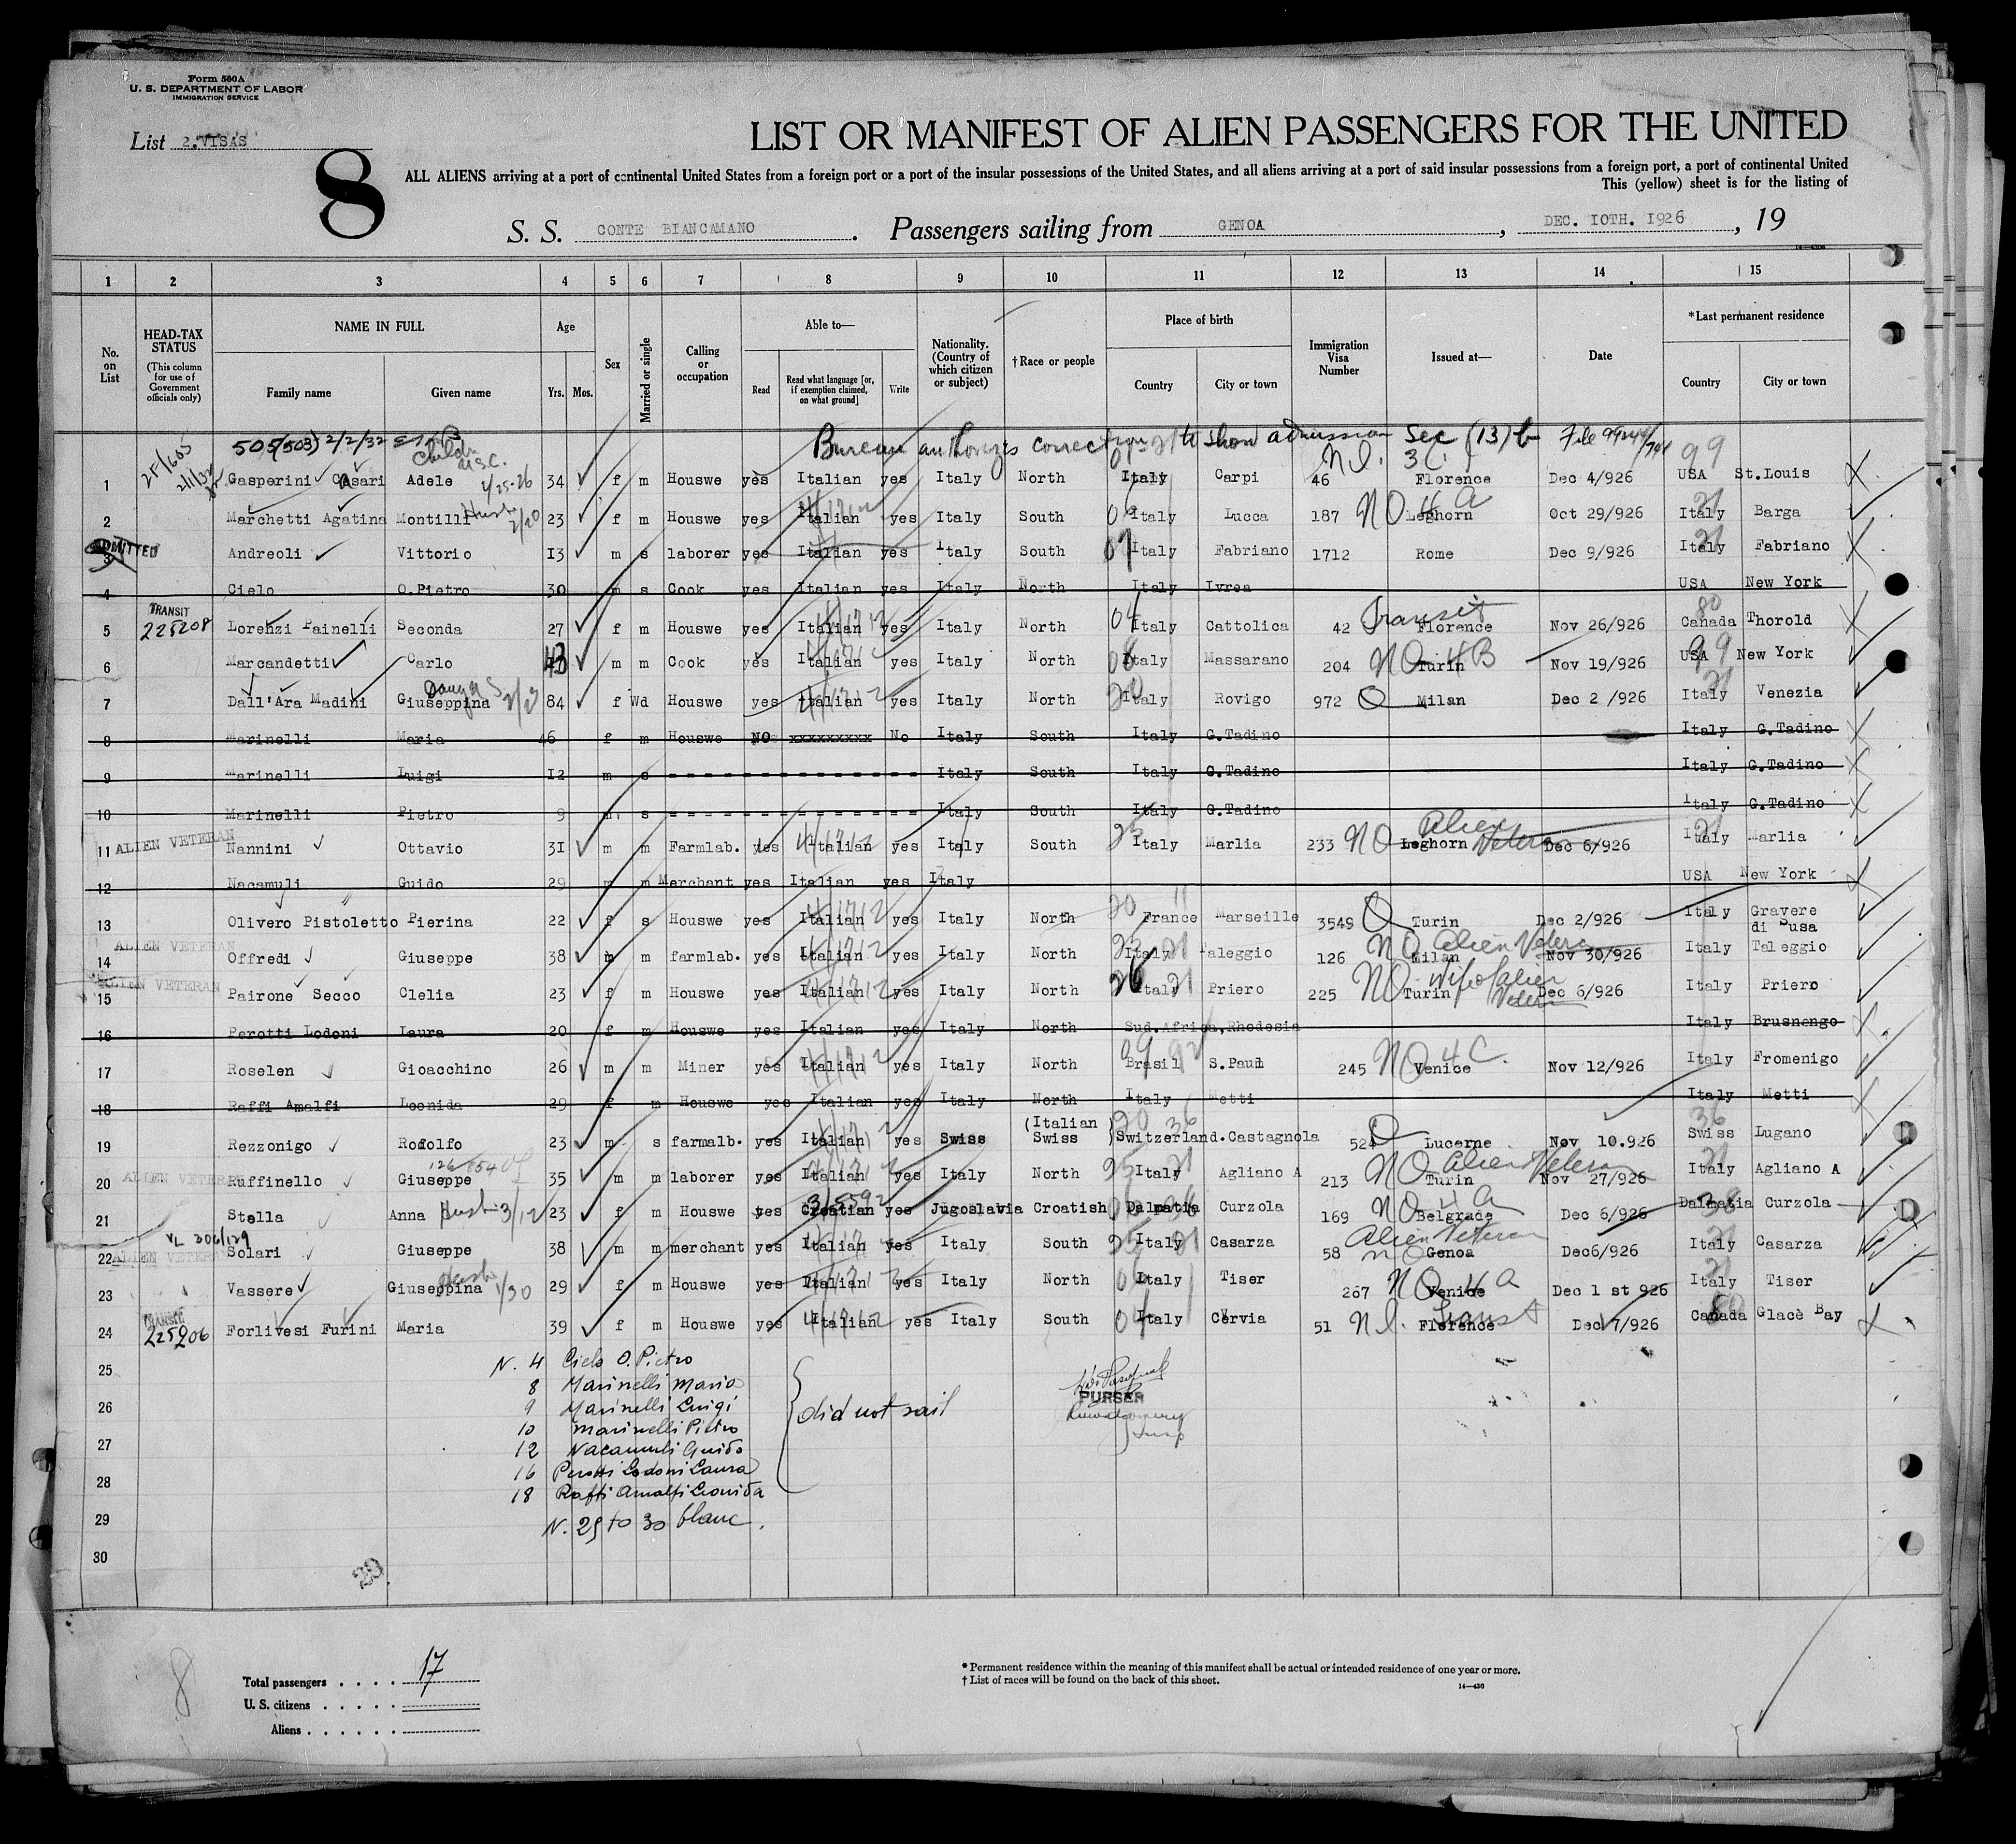 Form 500A
U. S. DEPARTMENT OF LABOR
IMMIGRATION SERVICE
List 2.VISAS
8
LIST OR MANIFEST OF ALIEN PASSENGERS FOR THE UNITED
ALL ALIENS arriving at a port of continental United States from a foreign port or a port of the insular possessions of the United States, and all aliens arriving at a port of said insular possessions from a foreign port, a port of continental United
This (yellow) sheet is for the listing of
S. S. CONTE BIANCAMANO. Passengers sailing from GENOA, DEC. IOTH. 1926, 19
1 2 3 4 5 6 7 8 9 10 11 12 13 14 15
No. on List
HEAD-TAX STATUS (This column for use of Government officials only)
NAME IN FULL Family name Given name
Age Yrs. Mos.
Sex
Married or single
Calling or occupation
Able to— Read Read what language [or, if exemption claimed, on what ground] Write
Nationality. (Country of which citizen or subject)
†Race or people
Place of birth Country City or town
Immigration Visa Number
Issued at—
Date
*Last permanent residence Country City or town
505(503) 2/2/32 Bureau authorizes correction to show admission Sec (13) b File
1 Gasperini Casari Adele 34 f m Houswe yes Italian yes Italy North Italy Carpi 46 Florence Dec 4/926 USA St.Louis
2 Marchetti Agatina Montilli 23 f m Houswe yes Italian yes Italy South Italy Lucca 187 NO 4 a Leghorn Oct 29/926 Italy Barga
ADMITTED
3 Andreoli Vittorio I3 m s laborer yes Italian yes Italy South Italy Fabriano 1712 Rome Dec 9/926 Italy Fabriano
4 Cielo O.Pietro 30 m s Cook yes Italian yes Italy North Italy Ivrea USA New York
TRANSIT 225208
5 Lorenzi Painelli Seconda 27 f m Houswe yes Italian yes Italy North Italy Cattolica 42 Transit Florence Nov 26/926 Canada Thorold
6 Marcandetti Carlo 43 m m Cook yes Italian yes Italy North Italy Massarano 204 NO 4 B Turin Nov 19/926 USA New York
7 Dall'Ara Madini Giuseppina 84 f Wd Houswe yes Italian yes Italy North Italy Rovigo 972 Milan Dec 2 /926 Italy Venezia
8 Marinelli Maria 46 f m Houswe NO xxxxxxxxx No Italy South Italy G.Tadino Italy G.Tadino
9 Marinelli Luigi I2 m s Italy South Italy G.Tadino Italy G.Tadino
10 Marinelli Pietro 9 m. s Italy South Italy G.Tadino Italy G.Tadino
ALIEN VETERAN
11 Nannini Ottavio 3I m m Farmlab. yes Italian yes Italy South Italy Marlia 233 NO Leghorn Alien Veteran Dec 6/926 Italy Marlia
12 Nacamuli Guido 29 m m Merchant yes Italian yes Italy USA New York
13 Olivero Pistoletto Pierina 22 f s Houswe yes Italian yes Italy North France Marseille 3549 Turin Dec 2/926 Italy Gravere di Susa
ALIEN VETERAN
14 Offredi Giuseppe 38 m m farmlab. yes Italian yes Italy North Italy Taleggio 126 NO Alien Veteran Milan Nov 30/926 Italy Taleggio
ALIEN VETERAN
15 Pairone Secco Clelia 23 f m Houswe yes Italian yes Italy North Italy Priero 225 NO Wife of alien Veteran Turin Dec 6/926 Italy Priero
16 Perotti Lodoni Laura 20 f m Houswe yes Italian yes Italy North Sud.Africa,Rhodesia Italy Brusnengo
17 Roselen Gioacchino 26 m m Miner yes Italian yes Italy North Brasil S.Paul 245 NO 4 C. Venice Nov 12/926 Italy Fromenigo
18 Raffi Amalfi Leonida 29 f m Houswe yes Italian yes Italy North Italy Metti Italy Metti
19 Rezzonigo Rodolfo 23 m s farmalb. yes Italian yes Swiss (Italian Swiss ) Switzerland.Castagnola 524 Lucerne Nov 10.926 Swiss Lugano
ALIEN VETERAN
20 Ruffinello Giuseppe 35 m m laborer yes Italian yes Italy North Italy Agliano A 213 NO Alien Veteran Turin Nov 27/926 Italy Agliano A
21 Stella Anna 23 f m Houswe yes Croatian yes Jugoslavia Croatish Dalmatia Curzola 169 NO 4 a Belgrade Dec 6/926 Dalmatia Curzola
VL 306/129
ALIEN VETERAN
22 Solari Giuseppe 38 m m merchant yes Italian yes Italy South Italy Casarza 58 Alien Veteran Genoa Dec6/926 Italy Casarza
23 Vassere Giuseppina 29 f m Houswe yes Italian yes Italy North Italy Tiser 267 NO 4 a Venice Dec 1 st 926 Italy Tiser
TRANSIT 225206
24 Forlivesi Furini Maria 39 f m Houswe yes Italian yes Italy South Italy Cervia 51 Transit Florence Dec 7/926 Canada Glacè Bay
25 N. 4 Cielo O. Pietro
8 Marinelli Maria
26 9 Marinelli Luigi did not sail PURSER
10 Marinelli Pietro
27 12 Nacamuli Guido
16 Perotti Lodoni Laura
28 18 Raffi Amalfi Leonida
29 N. 25 to 30 blanc.
30
29
8
Total passengers 17
U. S. citizens
Aliens
* Permanent residence within the meaning of this manifest shall be actual or intended residence of one year or more.
† List of races will be found on the back of this sheet.
14—430